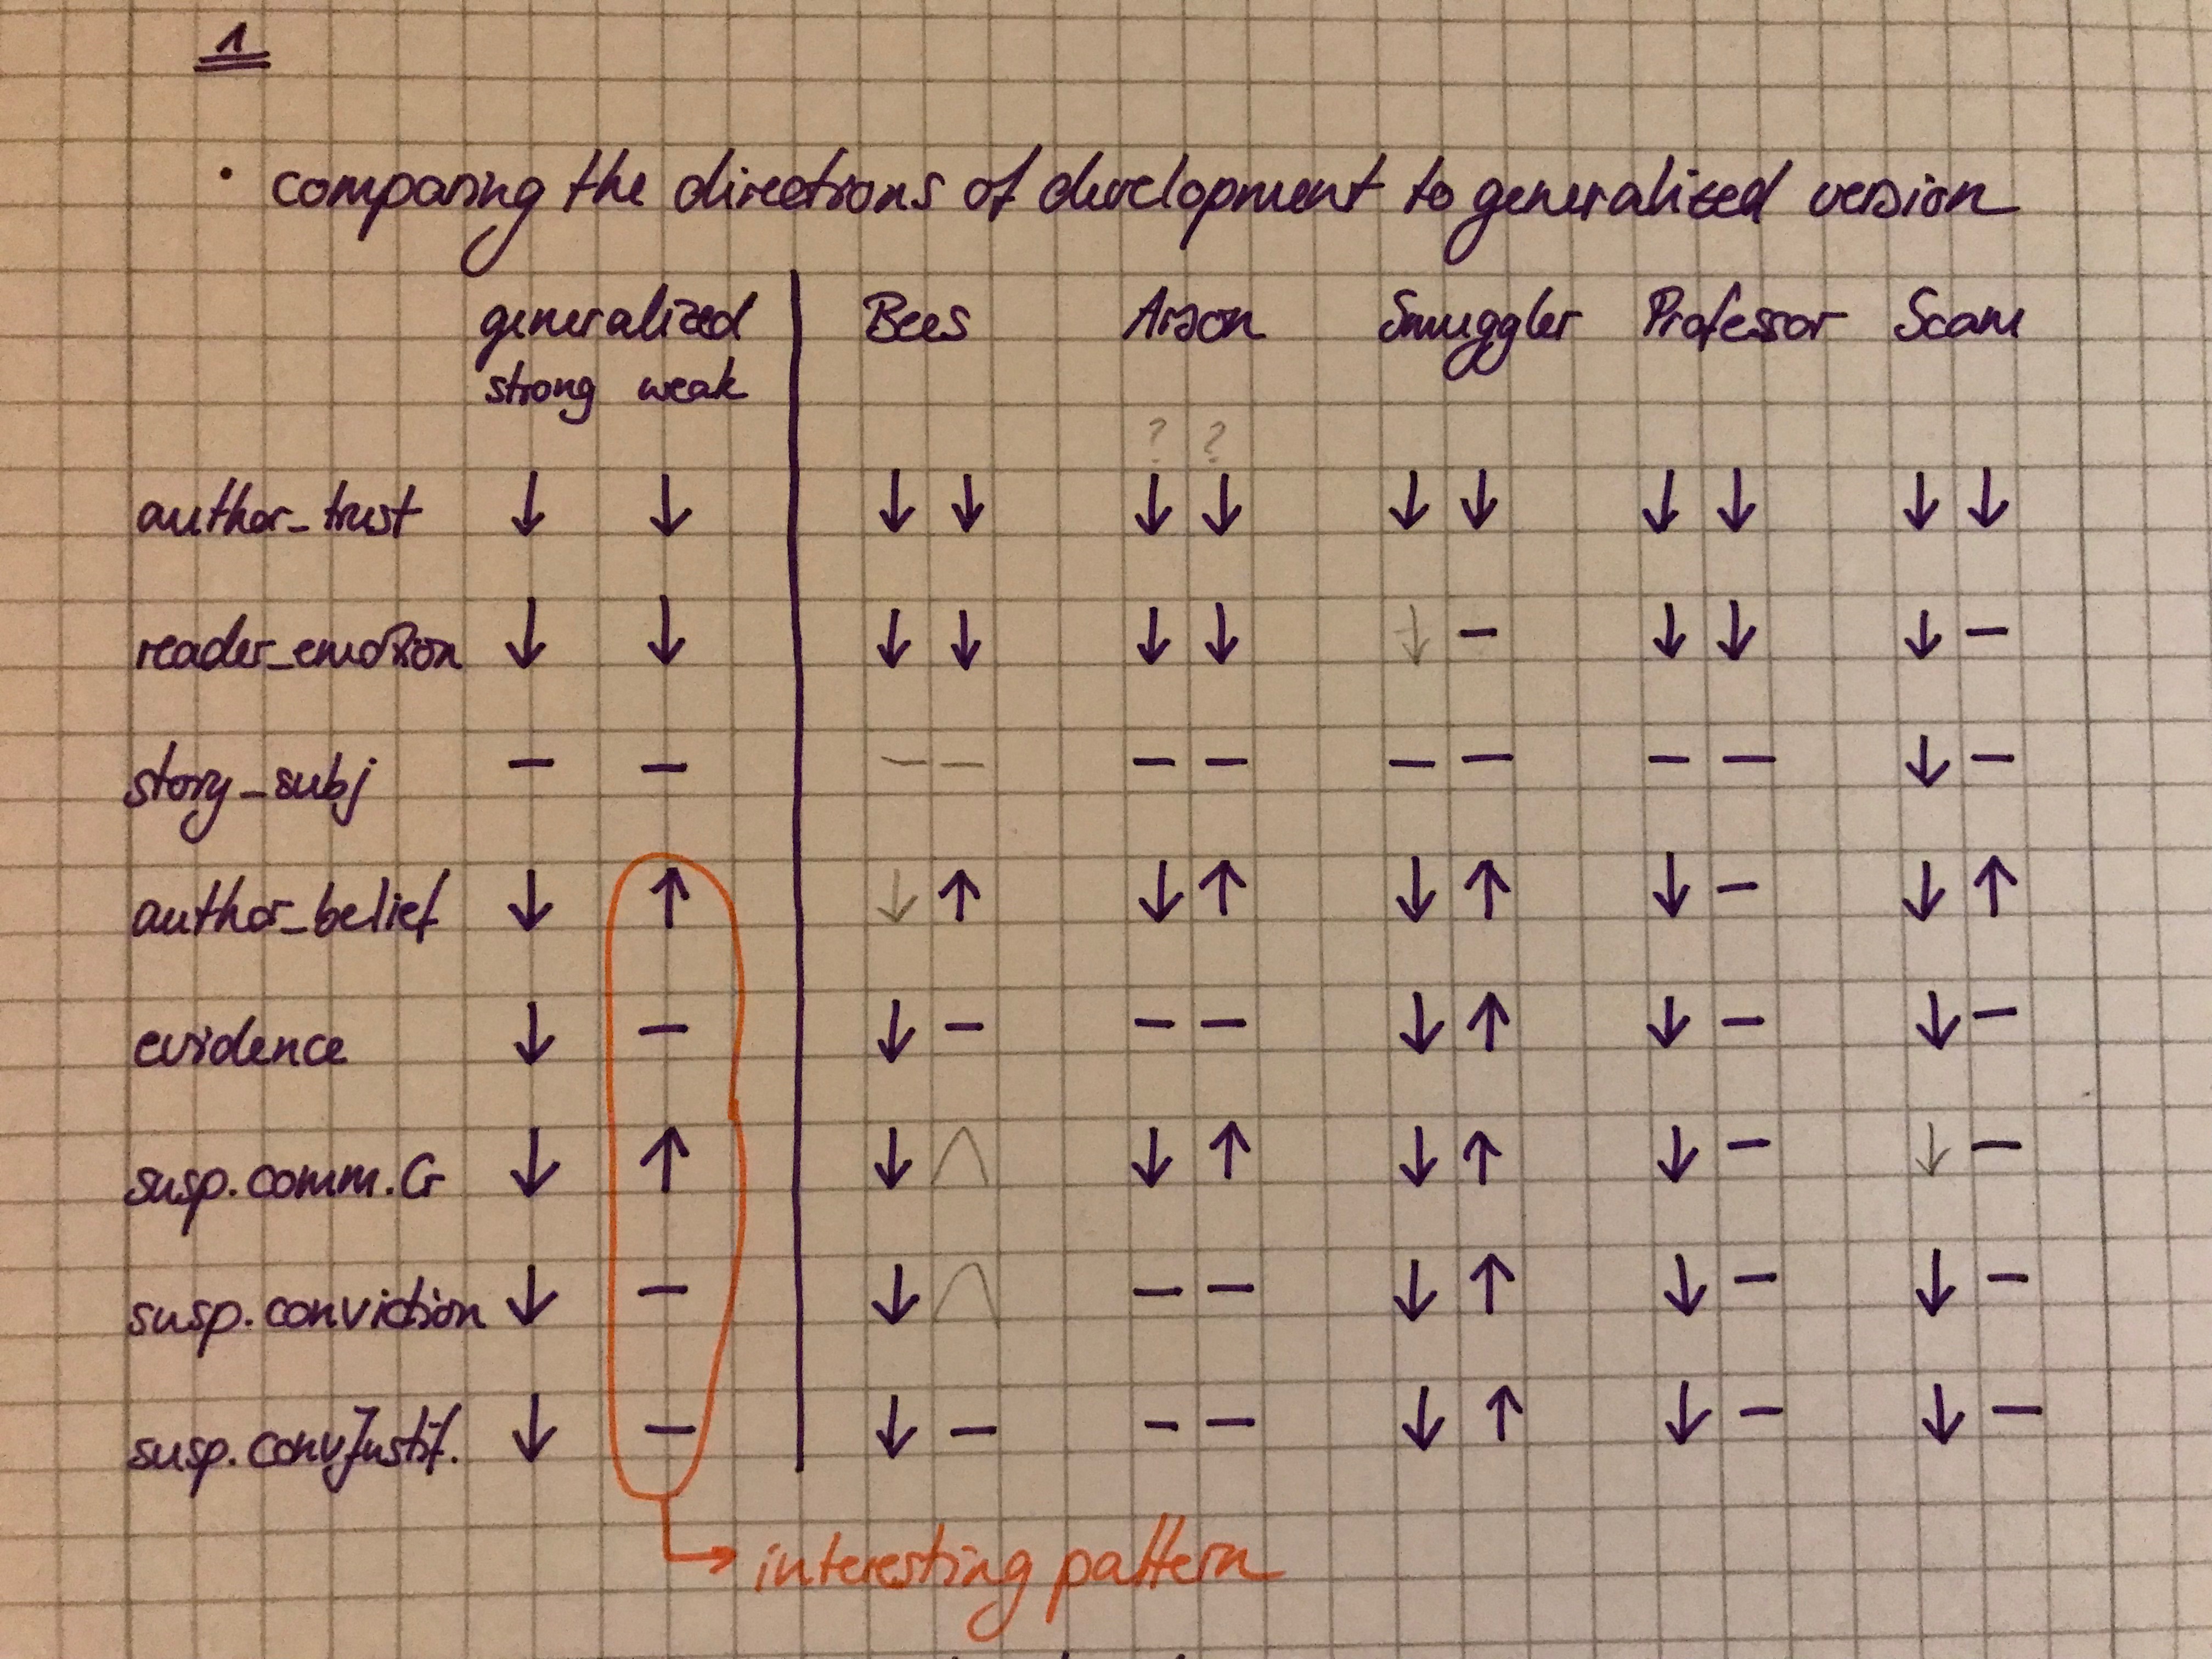 1
• comparing the directions of development to generalized version
generalized Bees Arson Smuggler Professor Scam
strong weak
? ?
author_trust ↓ ↓ ↓ ↓ ↓ ↓ ↓ ↓ ↓ ↓ ↓ ↓
reader_emotion ↓ ↓ ↓ ↓ ↓ ↓ ↓ – ↓ ↓ ↓ –
story_subj – – – – – – – – – – ↓ –
author_belief ↓ ↑ ↓ ↑ ↓ ↑ ↓ ↑ ↓ – ↓ ↑
evidence ↓ – ↓ – – – ↓ ↑ ↓ – ↓ –
susp.comm.Cr ↓ ↑ ↓ ∧ ↓ ↑ ↓ ↑ ↓ – ↓ –
susp.conviction ↓ – ↓ ∧ – – ↓ ↑ ↓ – ↓ –
susp.convJustif. ↓ – ↓ – – – ↓ ↑ ↓ – ↓ –
→ interesting pattern